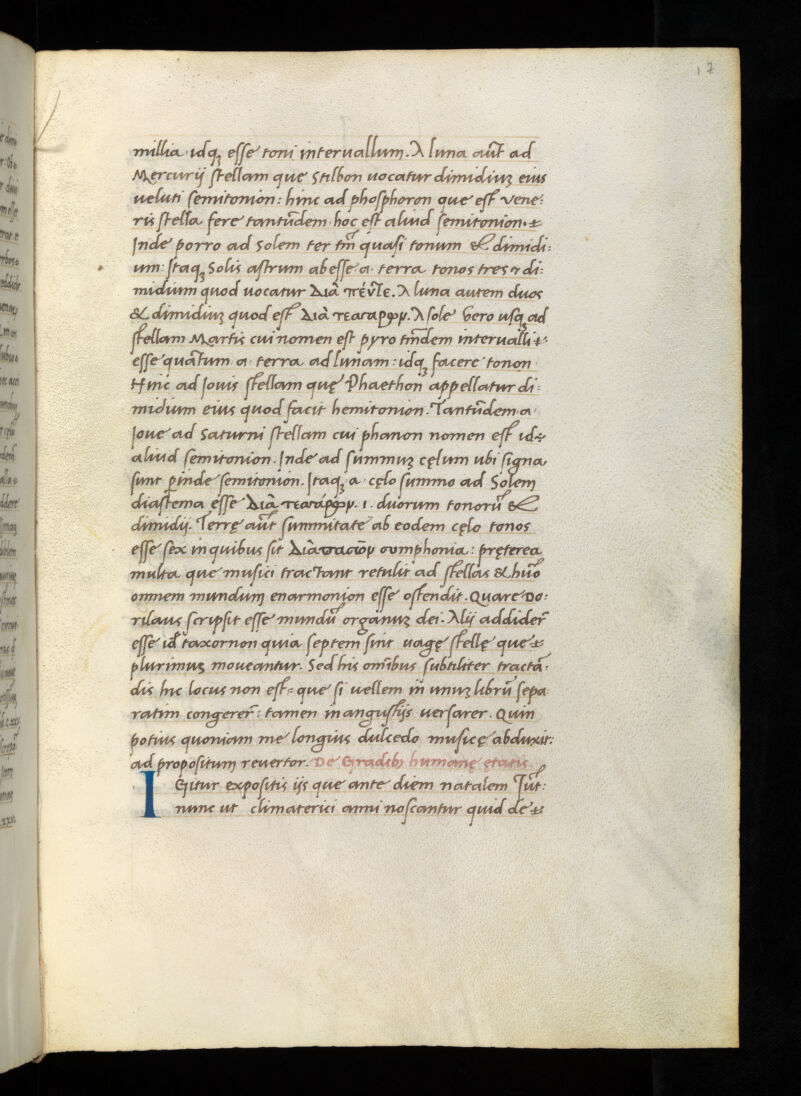 17
millia idqꝫ esse toni interuallum. A luna aut̄ ad
Mercurij stellam que Stilbon uocatur dimidiuꝫ eius
ueluti semitonion: hinc ad phosphoron que est vene:
ris stella fere tantūdem hoc est aliud semitonion.
Inde porro ad Solem ter tm̄ quasi tonum & dimidi:
um: Itaqꝫ Solis astrum abesse a terra tonos tres & di:
midium quod uocatur Διὰ πέντε. A luna autem duos
& dimidiuꝫ quod est Διὰ τεσσάρων. A sole vero usqꝫ ad
stellam Martis cui nomen est pyro tm̄dem interualli
esse quātum a terra ad lunam: idqꝫ facere tonon
Hinc ad Iouis stellam quę Phaethon appellatur di:
midium eius quod facit hemitonion. Tantūdem a
Ioue ad Saturni stellam cui phanon nomen est id
aliud semitonion. Inde ad summuꝫ cęlum ubi signa
sunt ꝑinde semitonion. Itaqꝫ a cęlo summo ad Solem
diastema esse Διὰ τεσσάρων. i. duorum tonorū &
dimidij. Terrę aut̄ summitate ab eodem cęlo tonos
esse sex in quibus sit Διὰπασῶν symphonia: pręterea
multa que musici tractant retulit ad stellas & hūc
omnem mundum enarmonion esse ostendit. Quare Do:
rilaus scripsit esse mundū organuꝫ dei. Alij addider̄
esse id taxornon quia septem sint uagę stellę que
plurimuꝫ moueantur. Sed his om̄ibus subtiliter tractā:
dis hic locus non est que si uellem in unuꝫ librū sepa
ratim congerer: tamen in angustijs uersarer. Quin
potius quoniam me longius dulcedo musicę abduxit:
ad propositum reuertor. De Gradibꝫ humanę etatis
IGitur expositis ijs que ante diem natalem sūt:
nunc ut climaterici anni noscantur quid de